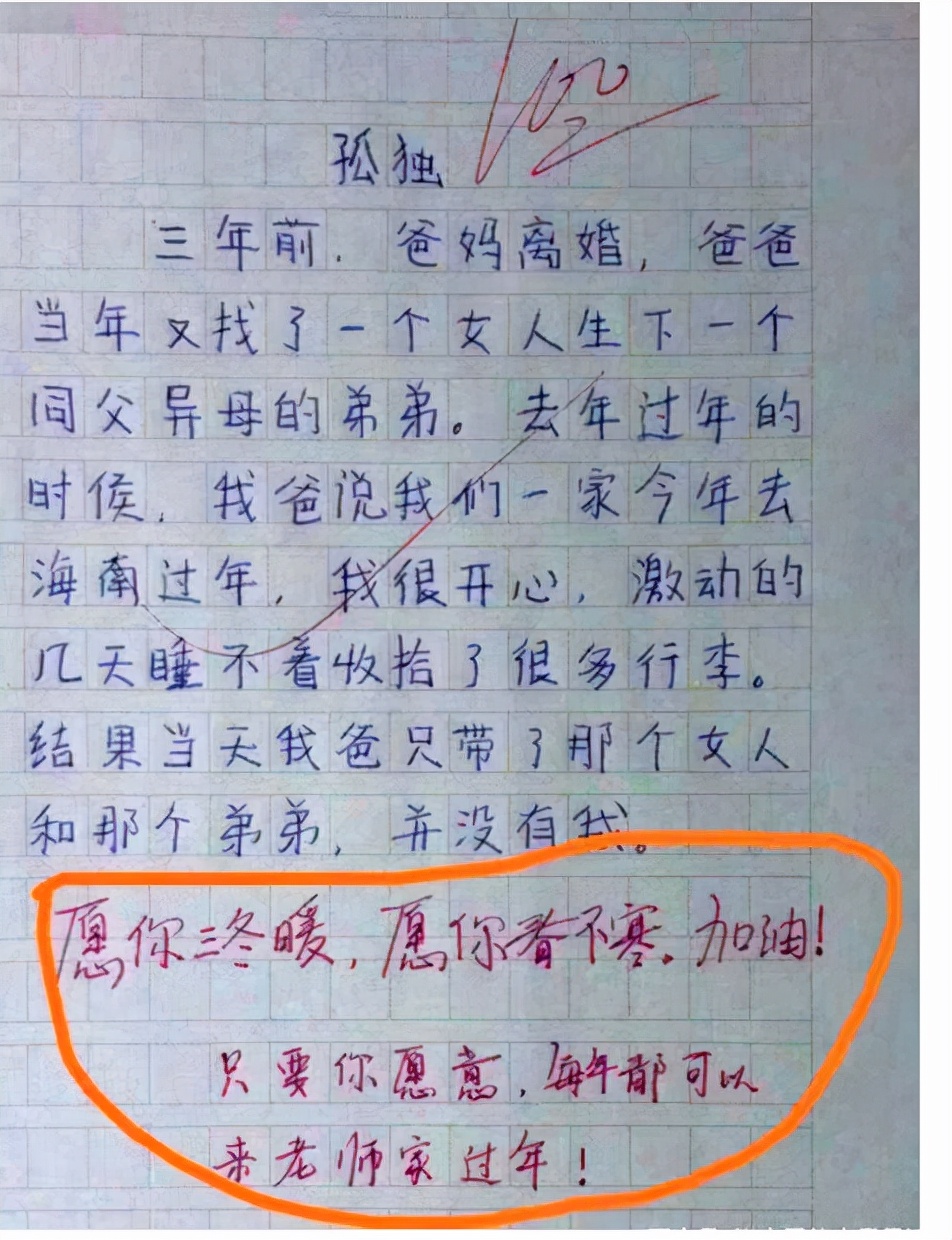 100
孤独
三年前.爸妈离婚,爸爸
当年又找了一个女人生下一个
同父异母的弟弟。去年过年的
时侯,我爸说我们一家今年去
海南过年,我很开心,激动的
几天睡不着收拾了很多行李。
结果当天我爸只带了那个女人
和那个弟弟,并没有我。
愿你三冬暖,愿你春不寒.加油!
只要你愿意,每年都可以
来老师家过年!